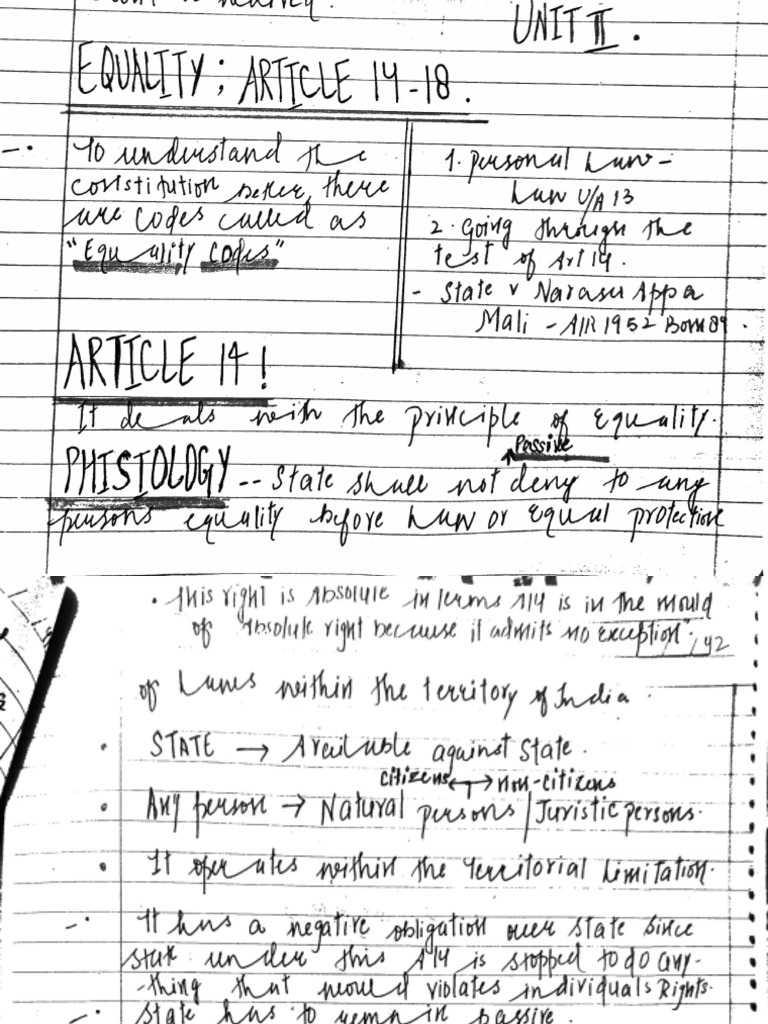 UNIT II.
EQUALITY; ARTICLE 14-18.
-· To understand the
constitution better, there
are codes called as
"Equality Codes"
1. Personal Law -
Law U/A 13
2. Going through the
test of Art 14.
- State v Narasu Appa
Mali - AIR 1952 Bom 84.
ARTICLE 14!
It deals with the principle of Equality.
Passive
PHISIOLOGY -- State shall not deny to any
persons equality before Law or Equal protection
• This right is Absolute in terms A14 is in the mould
of absolute right because it admits no exception".
42
of Laws within the territory of India.
• STATE → Available against State.
citizens ←→ non-citizens
• Any person → Natural persons / Juristic persons.
• It operates within the territorial Limitation.
-· It has a negative obligation over state since
state under this A14 is stopped to do any-
-thing that would violates individuals Rights.
-· State has to remain passive.